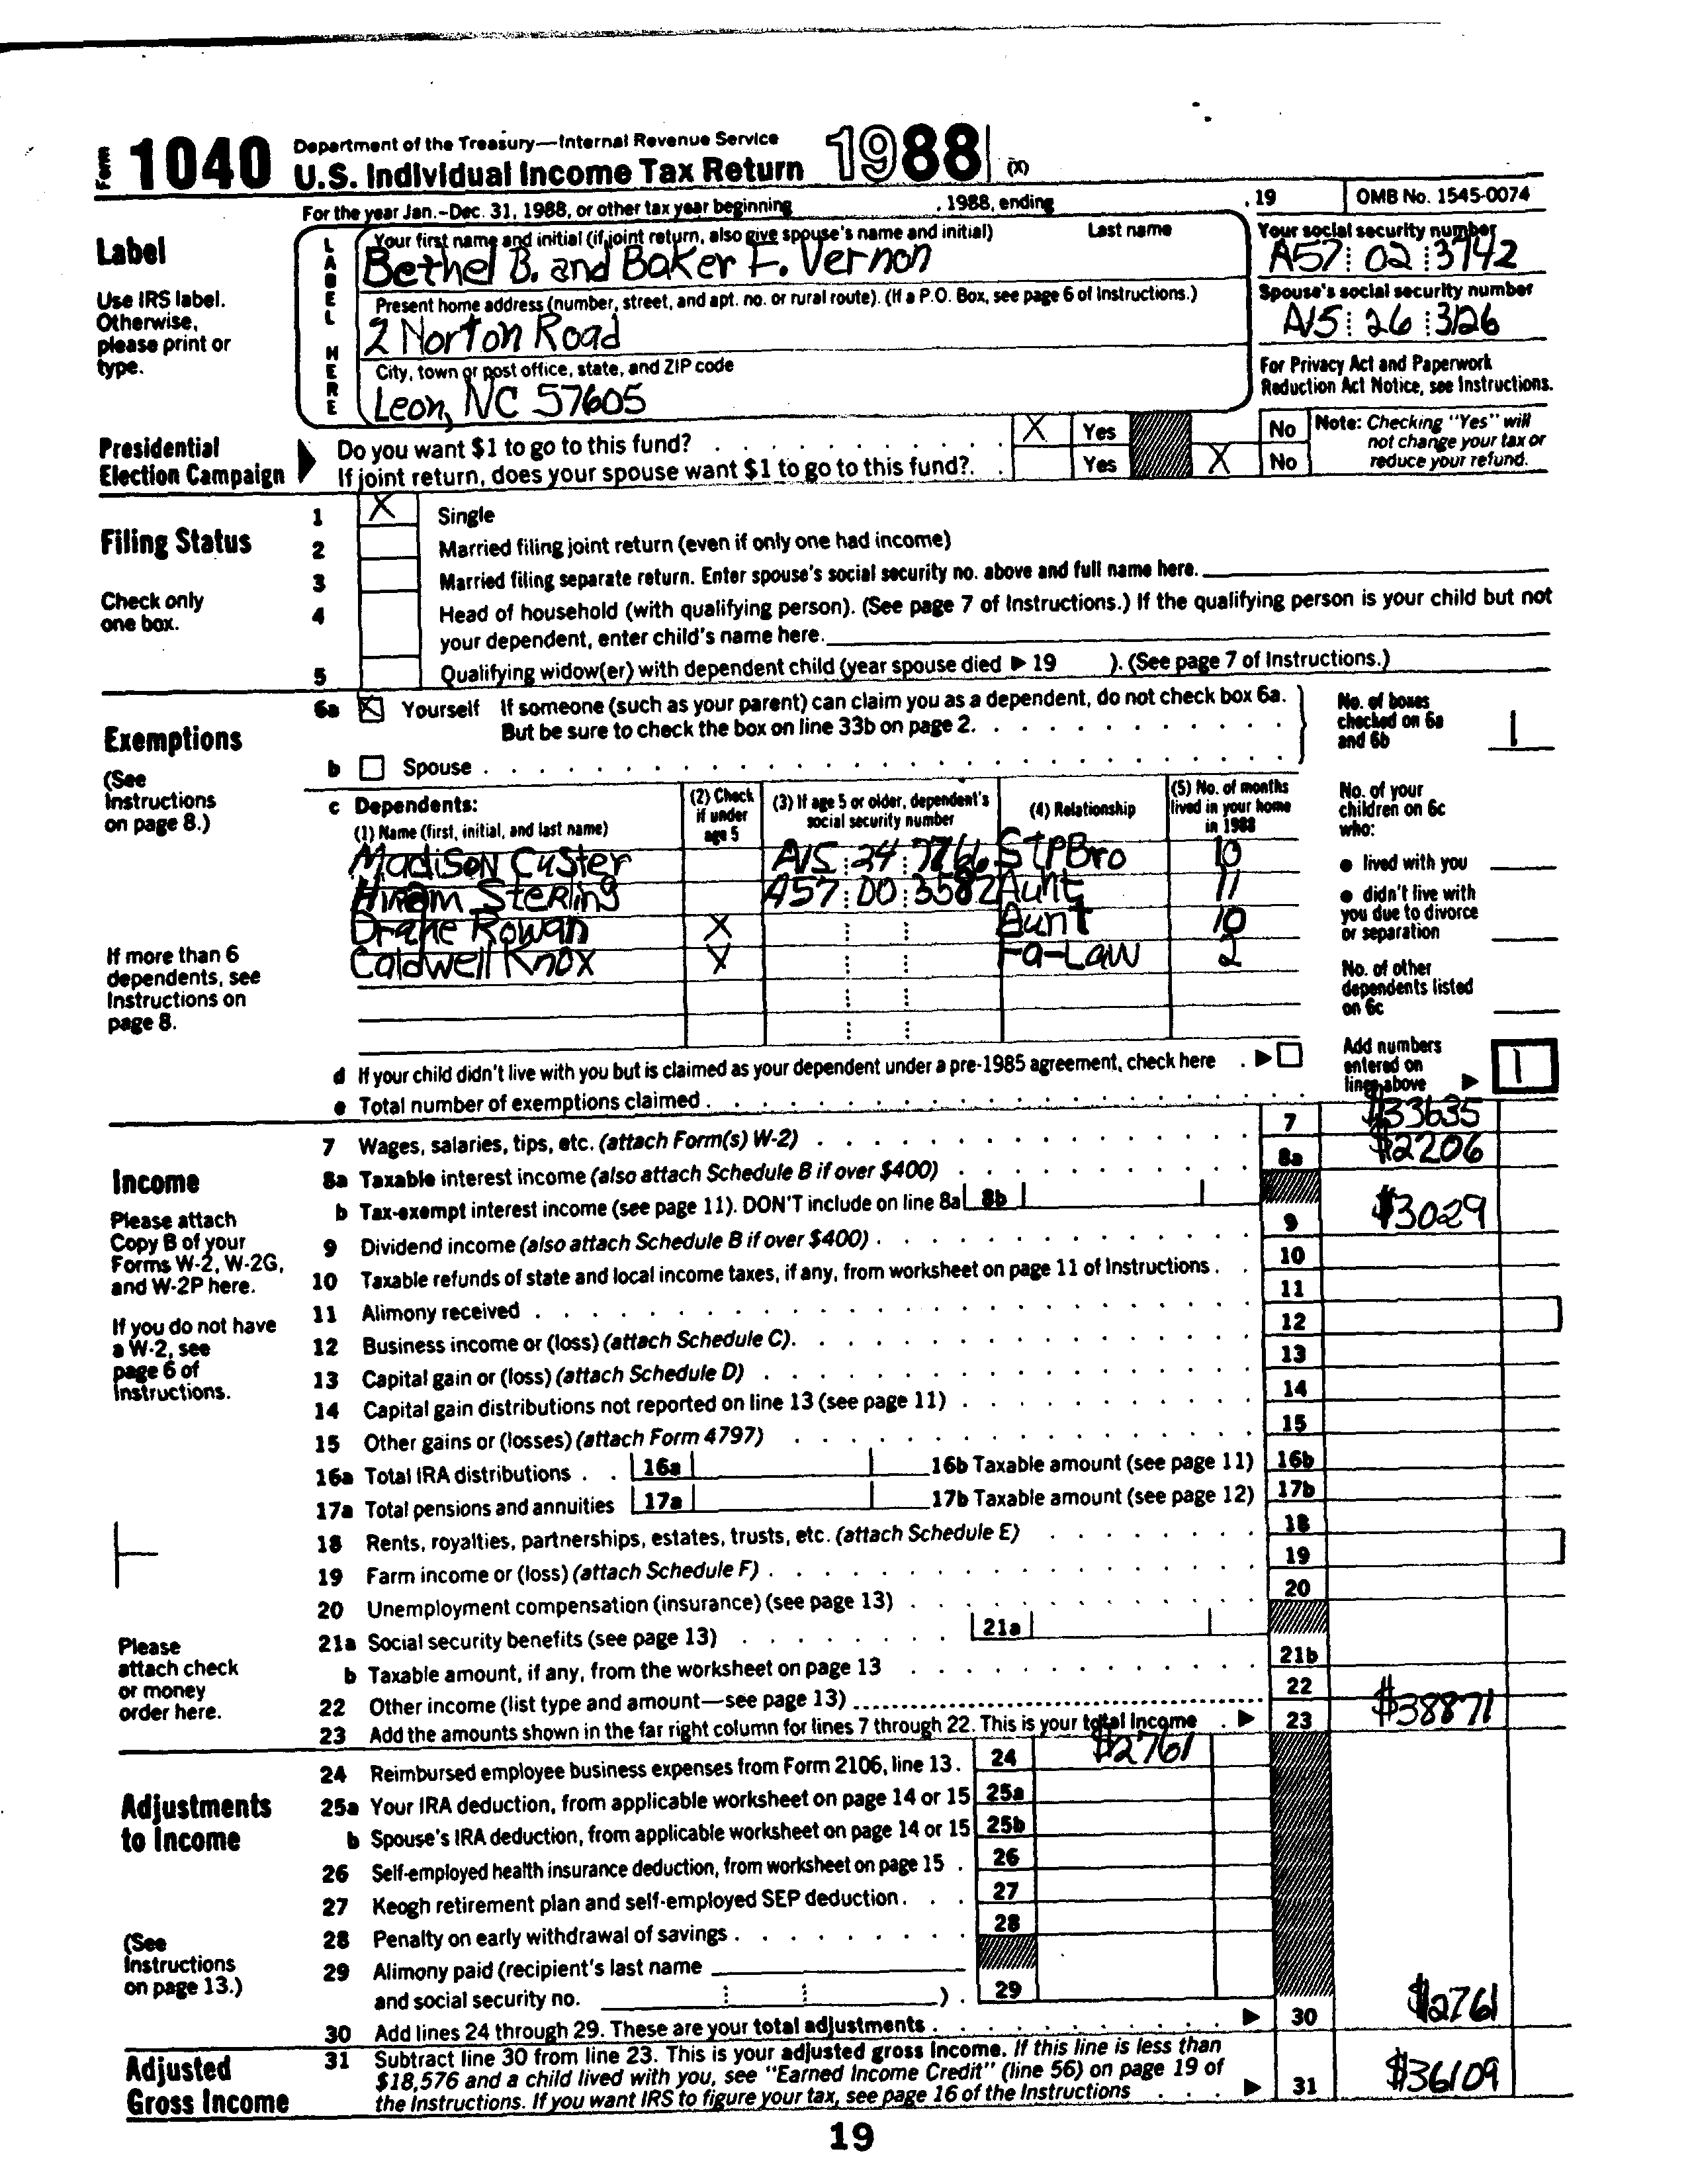 Form 1040 Department of the Treasury—Internal Revenue Service
U.S. Individual Income Tax Return 1988 (X)
For the year Jan.-Dec. 31, 1988, or other tax year beginning , 1988, ending , 19 OMB No. 1545-0074
Label
Use IRS label.
Otherwise,
please print or
type.
LABEL HERE
Your first name and initial (if joint return, also give spouse's name and initial) Last name
Bethel B. and Baker F. Vernon
Your social security number
A57 02 3742
Present home address (number, street, and apt. no. or rural route). (If a P.O. Box, see page 6 of Instructions.)
2 Norton Road
Spouse's social security number
A15 26 3126
City, town or post office, state, and ZIP code
Leon, NC 57605
For Privacy Act and Paperwork
Reduction Act Notice, see Instructions.
Presidential
Election Campaign
Do you want $1 to go to this fund? X Yes No
If joint return, does your spouse want $1 to go to this fund?. Yes X No
Note: Checking "Yes" will
not change your tax or
reduce your refund.
Filing Status
Check only
one box.
1 X Single
2 Married filing joint return (even if only one had income)
3 Married filing separate return. Enter spouse's social security no. above and full name here.
4 Head of household (with qualifying person). (See page 7 of Instructions.) If the qualifying person is your child but not
your dependent, enter child's name here.
5 Qualifying widow(er) with dependent child (year spouse died ▶ 19 ). (See page 7 of Instructions.)
Exemptions
(See
Instructions
on page 8.)
If more than 6
dependents, see
Instructions on
page 8.
6a X Yourself If someone (such as your parent) can claim you as a dependent, do not check box 6a.
But be sure to check the box on line 33b on page 2.
b Spouse
No. of boxes
checked on 6a
and 6b 1
c Dependents:
(1) Name (first, initial, and last name)
(2) Check
if under
age 5
(3) If age 5 or older, dependent's
social security number
(4) Relationship
(5) No. of months
lived in your home
in 1988
Madison Custer A15 24 7766 StPBro 10
Hiram Sterling A57 00 3582 Aunt 11
Drake Rowan X Aunt 10
Caldwell Knox X Fa-Law 2
No. of your
children on 6c
who:
● lived with you
● didn't live with
you due to divorce
or separation
No. of other
dependents listed
on 6c
d If your child didn't live with you but is claimed as your dependent under a pre-1985 agreement, check here ▶
e Total number of exemptions claimed
Add numbers
entered on
lines above ▶ 1
Income
Please attach
Copy B of your
Forms W-2, W-2G,
and W-2P here.
If you do not have
a W-2, see
page 6 of
Instructions.
Please
attach check
or money
order here.
7 Wages, salaries, tips, etc. (attach Form(s) W-2) 7 $33635
8a Taxable interest income (also attach Schedule B if over $400) 8a $2206
b Tax-exempt interest income (see page 11). DON'T include on line 8a 8b
9 Dividend income (also attach Schedule B if over $400) 9 $3029
10 Taxable refunds of state and local income taxes, if any, from worksheet on page 11 of Instructions 10
11 Alimony received 11
12 Business income or (loss) (attach Schedule C) 12
13 Capital gain or (loss) (attach Schedule D) 13
14 Capital gain distributions not reported on line 13 (see page 11) 14
15 Other gains or (losses) (attach Form 4797) 15
16a Total IRA distributions 16a 16b Taxable amount (see page 11) 16b
17a Total pensions and annuities 17a 17b Taxable amount (see page 12) 17b
18 Rents, royalties, partnerships, estates, trusts, etc. (attach Schedule E) 18
19 Farm income or (loss) (attach Schedule F) 19
20 Unemployment compensation (insurance) (see page 13) 20
21a Social security benefits (see page 13) 21a
b Taxable amount, if any, from the worksheet on page 13 21b
22 Other income (list type and amount—see page 13) 22
23 Add the amounts shown in the far right column for lines 7 through 22. This is your total income ▶ 23 $38871
Adjustments
to Income
(See
Instructions
on page 13.)
24 Reimbursed employee business expenses from Form 2106, line 13 24 $2761
25a Your IRA deduction, from applicable worksheet on page 14 or 15 25a
b Spouse's IRA deduction, from applicable worksheet on page 14 or 15 25b
26 Self-employed health insurance deduction, from worksheet on page 15 26
27 Keogh retirement plan and self-employed SEP deduction 27
28 Penalty on early withdrawal of savings 28
29 Alimony paid (recipient's last name
and social security no. ) 29
30 Add lines 24 through 29. These are your total adjustments ▶ 30 $2761
Adjusted
Gross Income
31 Subtract line 30 from line 23. This is your adjusted gross income. If this line is less than
$18,576 and a child lived with you, see "Earned Income Credit" (line 56) on page 19 of
the Instructions. If you want IRS to figure your tax, see page 16 of the Instructions ▶ 31 $36109
19